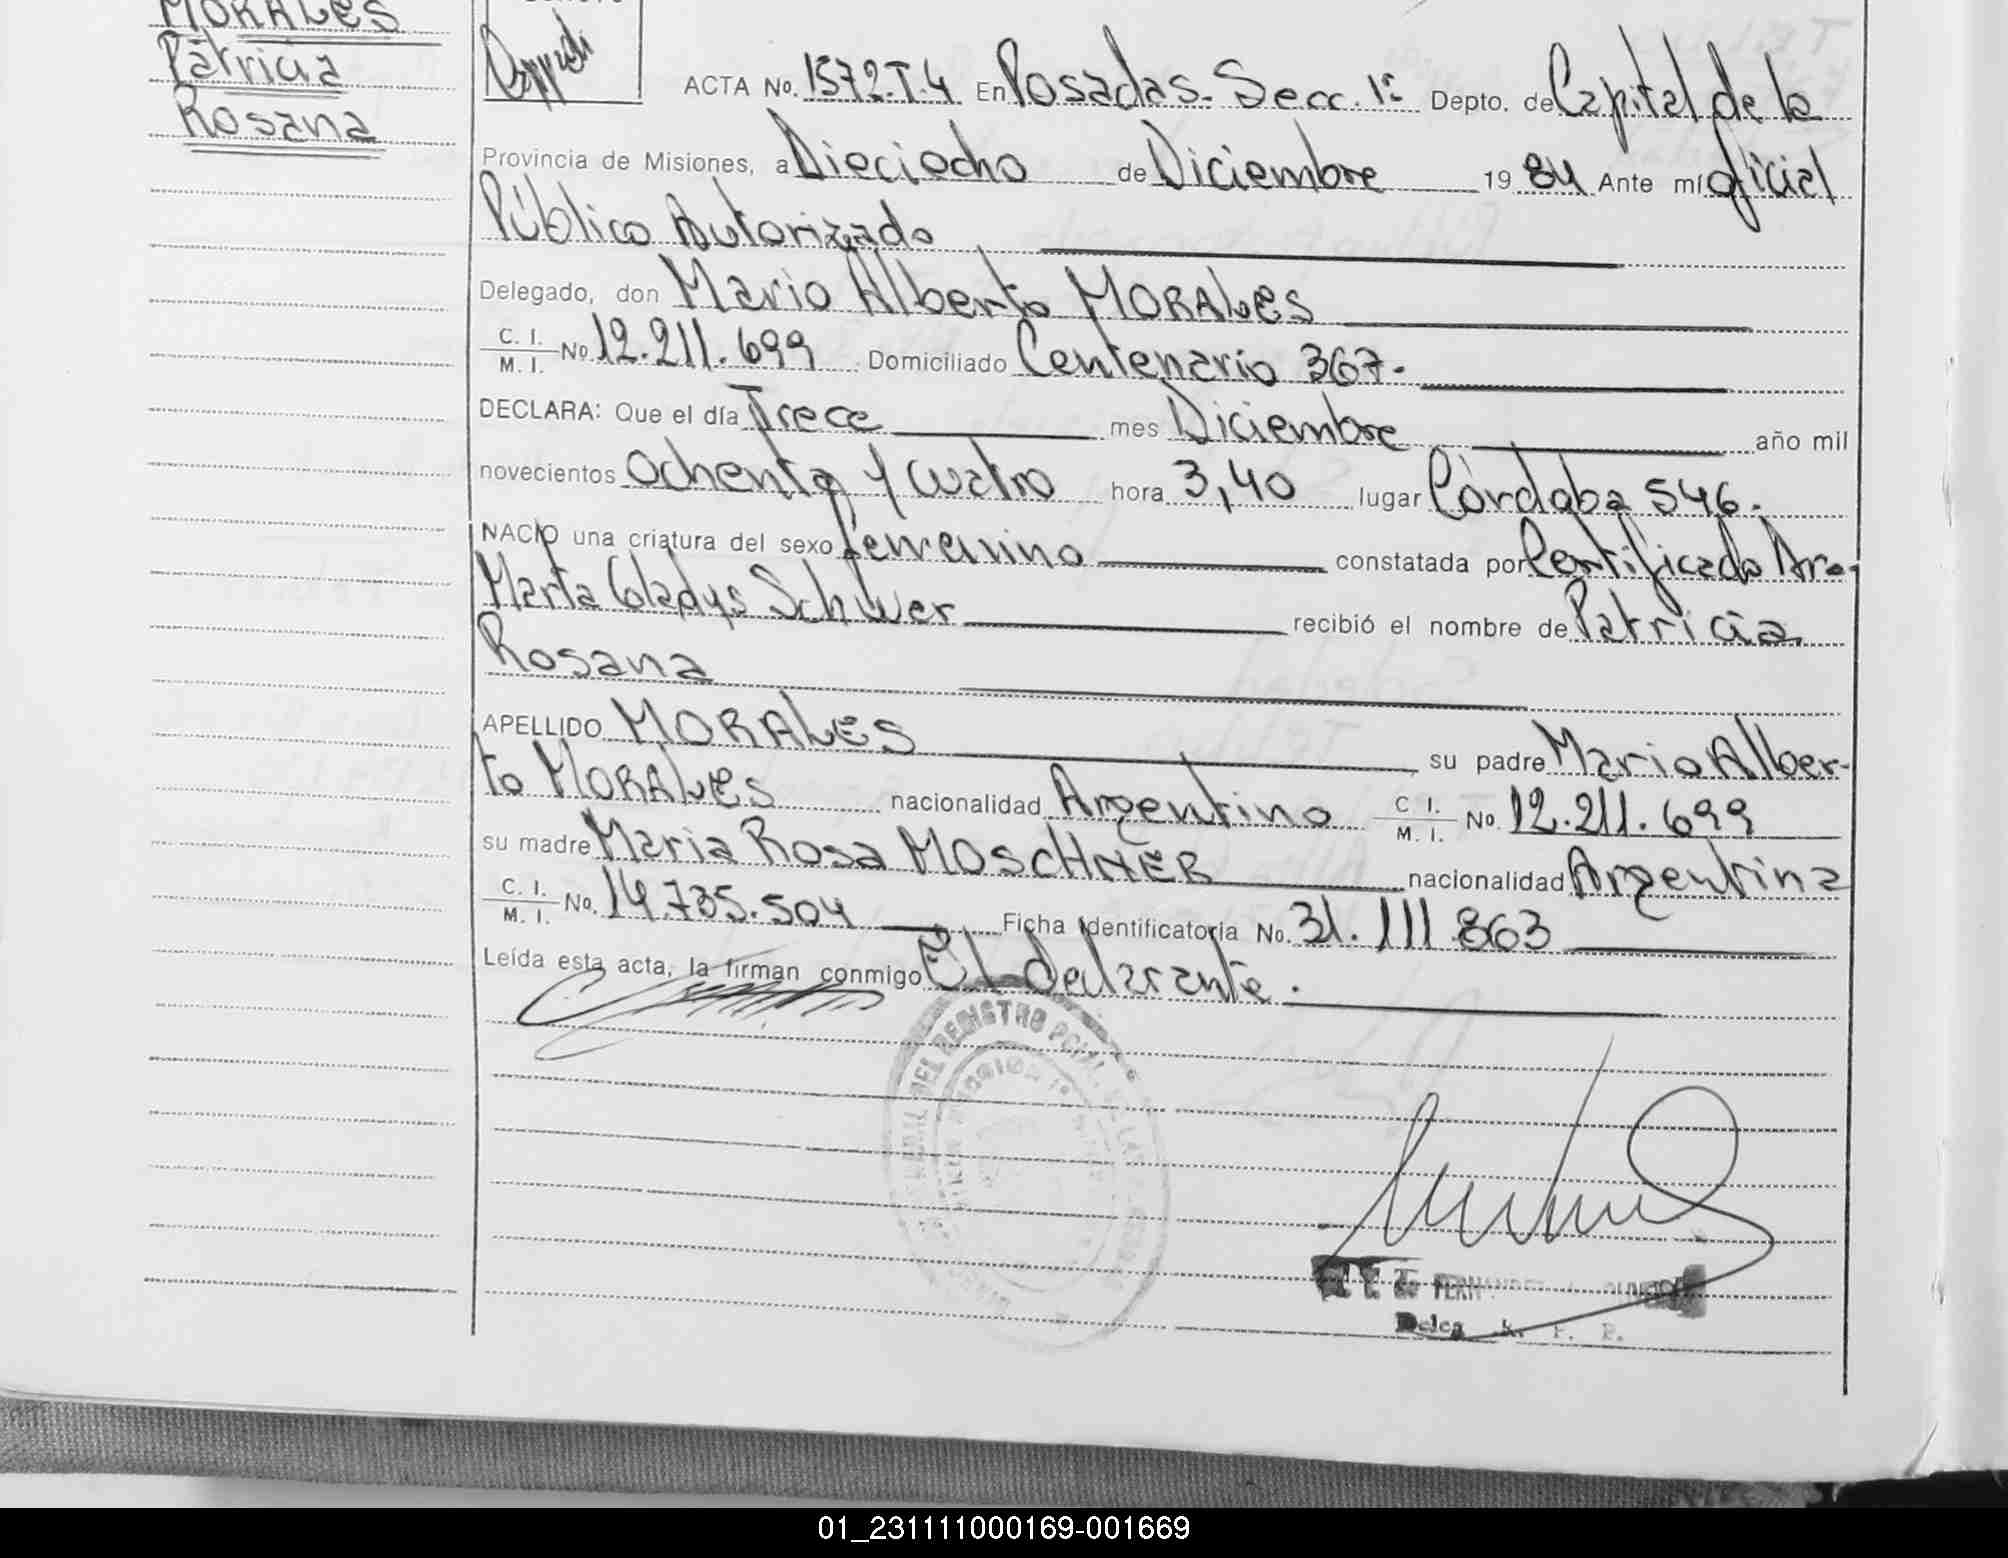 MORALES
Patricia
Rosana
ACTA No. 1572.T.4 En Posadas. Secc. 1ª Depto. de Capital de la
Provincia de Misiones, a Dieciocho de Diciembre 19 84 Ante mí oficial
Público Autorizado
Delegado, don Mario Alberto MORALES
C. I.
M. I. No. 12.211.699 Domiciliado Centenario 367.
DECLARA: Que el día Trece mes Diciembre año mil
novecientos ochenta y cuatro hora 3,40 lugar Córdoba 546.
NACIO una criatura del sexo femenino constatada por Certificado Dra.
Marta Gladys Schuver recibió el nombre de Patricia
Rosana
APELLIDO MORALES su padre Mario Alber-
to MORALES nacionalidad Argentino C. I.
M. I. No. 12.211.699
su madre Maria Rosa MOSCHNER nacionalidad Argentina
C. I.
M. I. No. 14.735.504 Ficha Identificatoria No. 31.111.863
Leída esta acta, la firman conmigo EL declarante.
DEL REGISTRO
FERNANDEZ
Deleg. R. P. P.
01_231111000169-001669